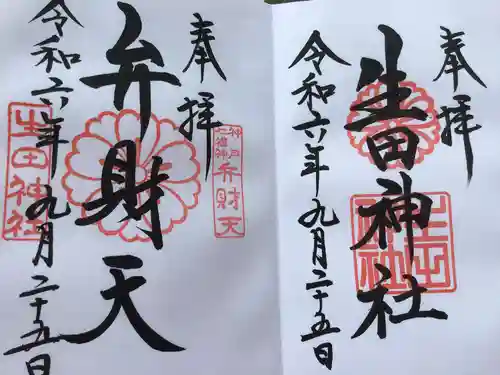 奉拝
生田神社
令和六年九月二十五日
生田神社
奉拝
弁財天
令和六年九月二十五日
生田神社
弁財天